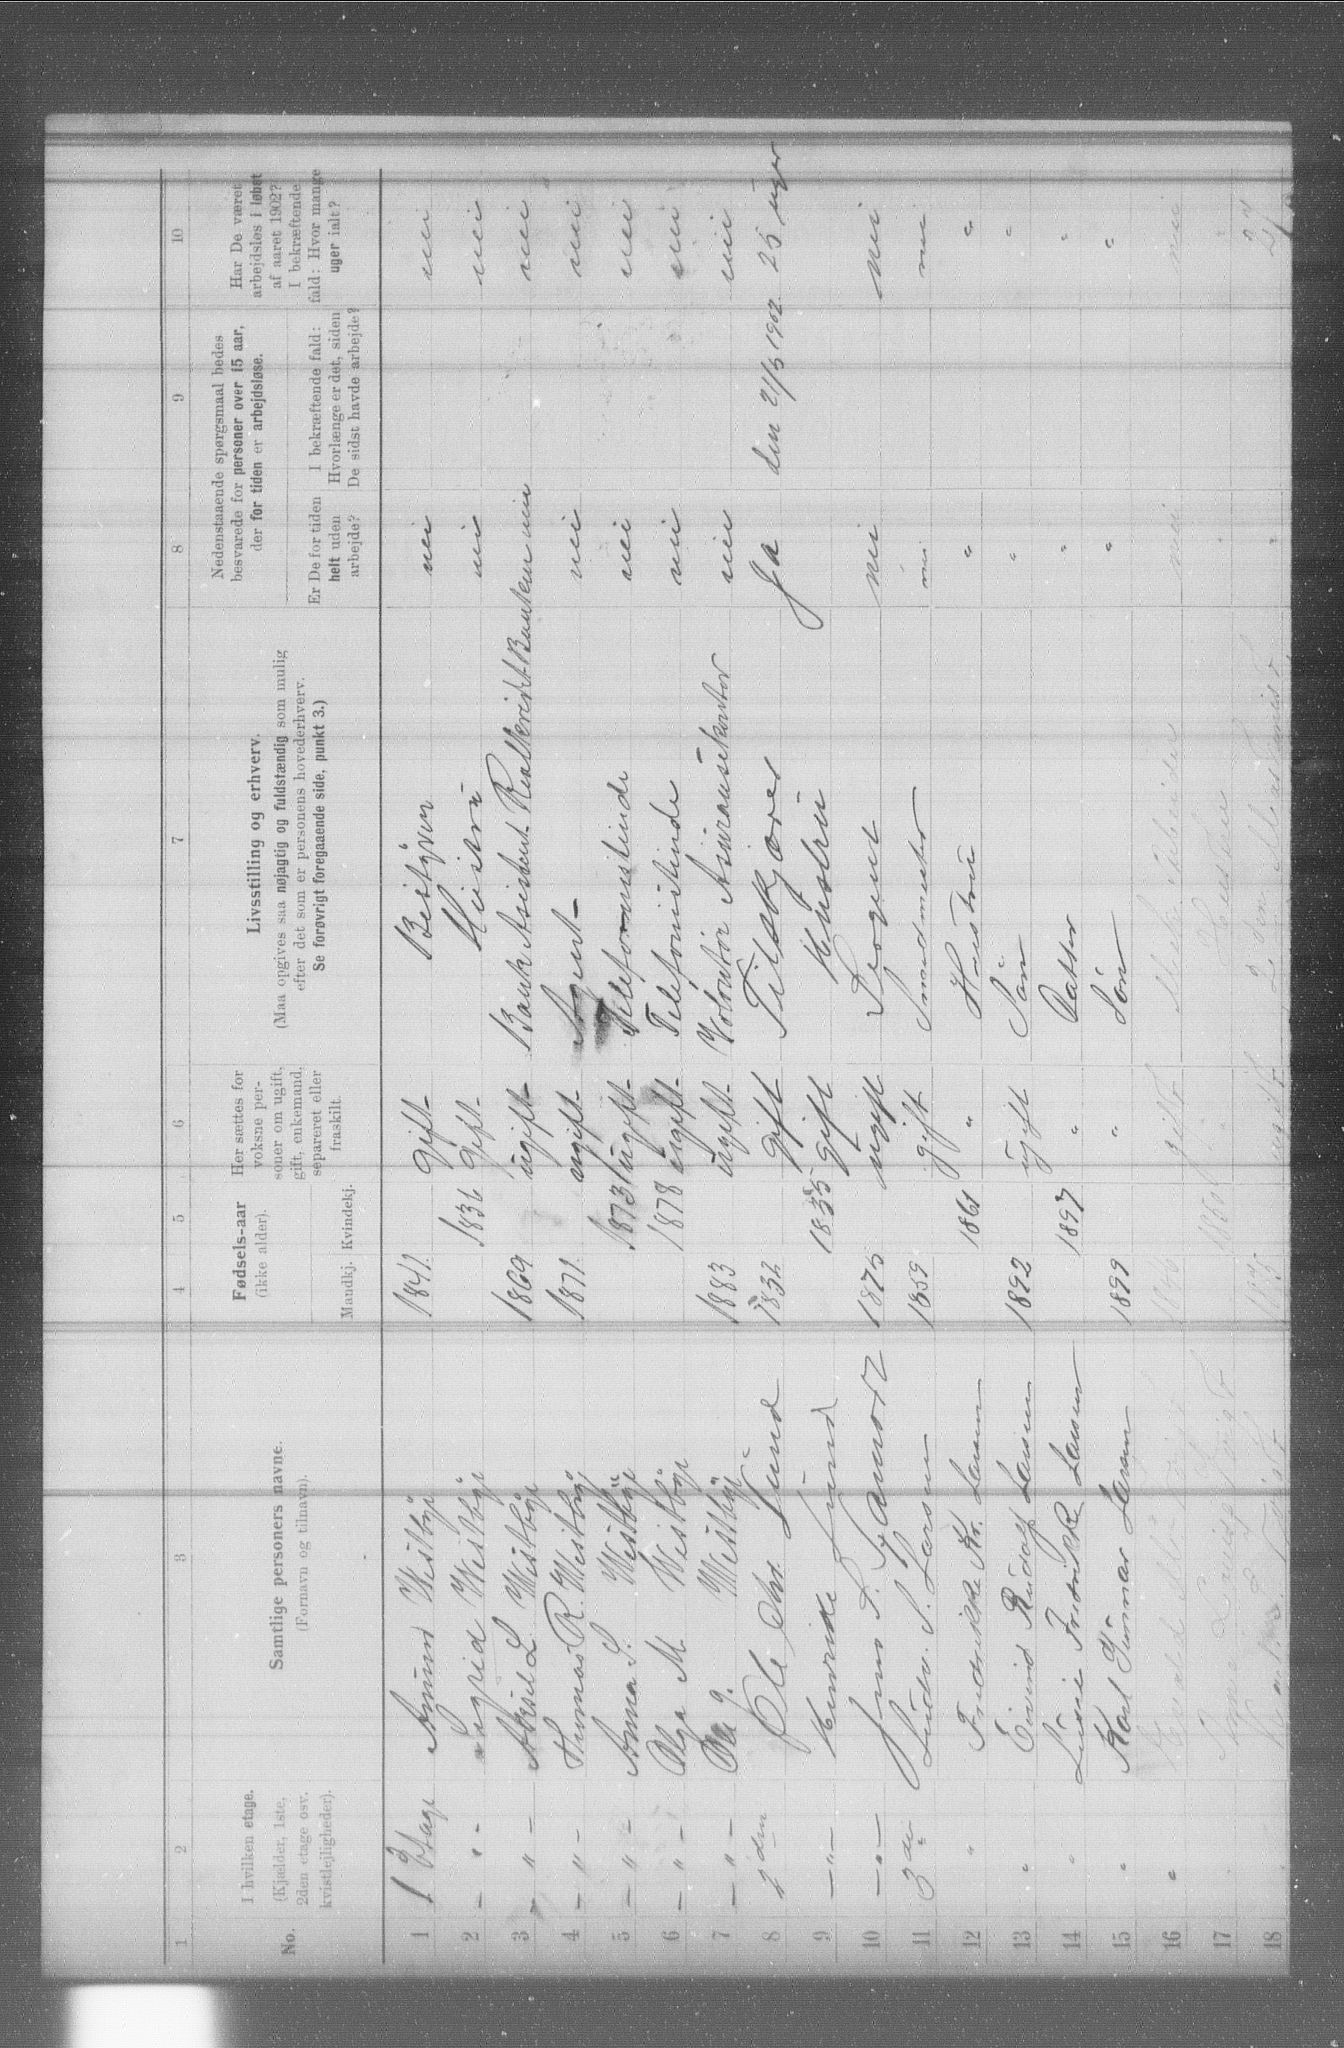 1 2 3 4 5 6 7 8 9 10
No.
I hvilken etage.
(Kjælder, 1ste,
2den etage osv.
kvistlejligheder).
Samtlige personers navne.
(Fornavn og tilnavn).
Fødsels-aar
(ikke alder).
Mandkj. Kvindekj.
Her sættes for
voksne per-
soner om ugift,
gift, enkemand,
separeret eller
fraskilt.
Livsstilling og erhverv.
(Maa opgives saa nøjagtig og fuldstændig som mulig
efter det som er personens hovederhverv.
Se forøvrigt foregaaende side, punkt 3.)
Nedenstaaende spørgsmaal bedes
besvarede for personer over 15 aar,
der for tiden er arbejdsløse.
Er De for tiden
helt uden
arbejde?
I bekræftende fald:
Hvorlænge er det, siden
De sidst havde arbejde?
Har De været
arbejdsløs i løbet
af aaret 1902?
I bekræftende
fald: Hvor mange
uger ialt?
1 1 Etage Westbye 1841. Gift Bestyrer nei nei
2 - " - Sigrid Westbye 1836 Gift Husstru nei nei
3 - " - L Westbye 1869 ugift Bank Assistent Realkreditbanken nei nei
4 - " - Thomas R. Westbye 1871. ugift Agent nei nei
5 - " - Anna S. Westbye 1873 ugift Telefonistinde nei nei
6 - " - Olga M Westbye 1878 ugift Telefonistinde nei nei
7 - " - Westbye 1883 ugift Volontør Assurancekontor nei nei
8 2 den Ole Chr. Lund 1832 gift Ja den 21/5 1902 25 uger
9 - " - Henrikke Lund 1835 gift Hustru
10 - " - Jens 1875 ugift nei nei
11 3 die Ludv. Larsen 1859 gift nei nei
12 " Fredrikke Kr. Larsen 1861 " Hustru " "
13 " Eivind Rudolf Larsen 1892 ugift Søn " "
14 " Fredrikke Larsen 1897 " Datter " "
15 " Karl Gunnar Larsen 1899 " Søn " "
16 " gift nei nei
17 " Louise Hustru
18